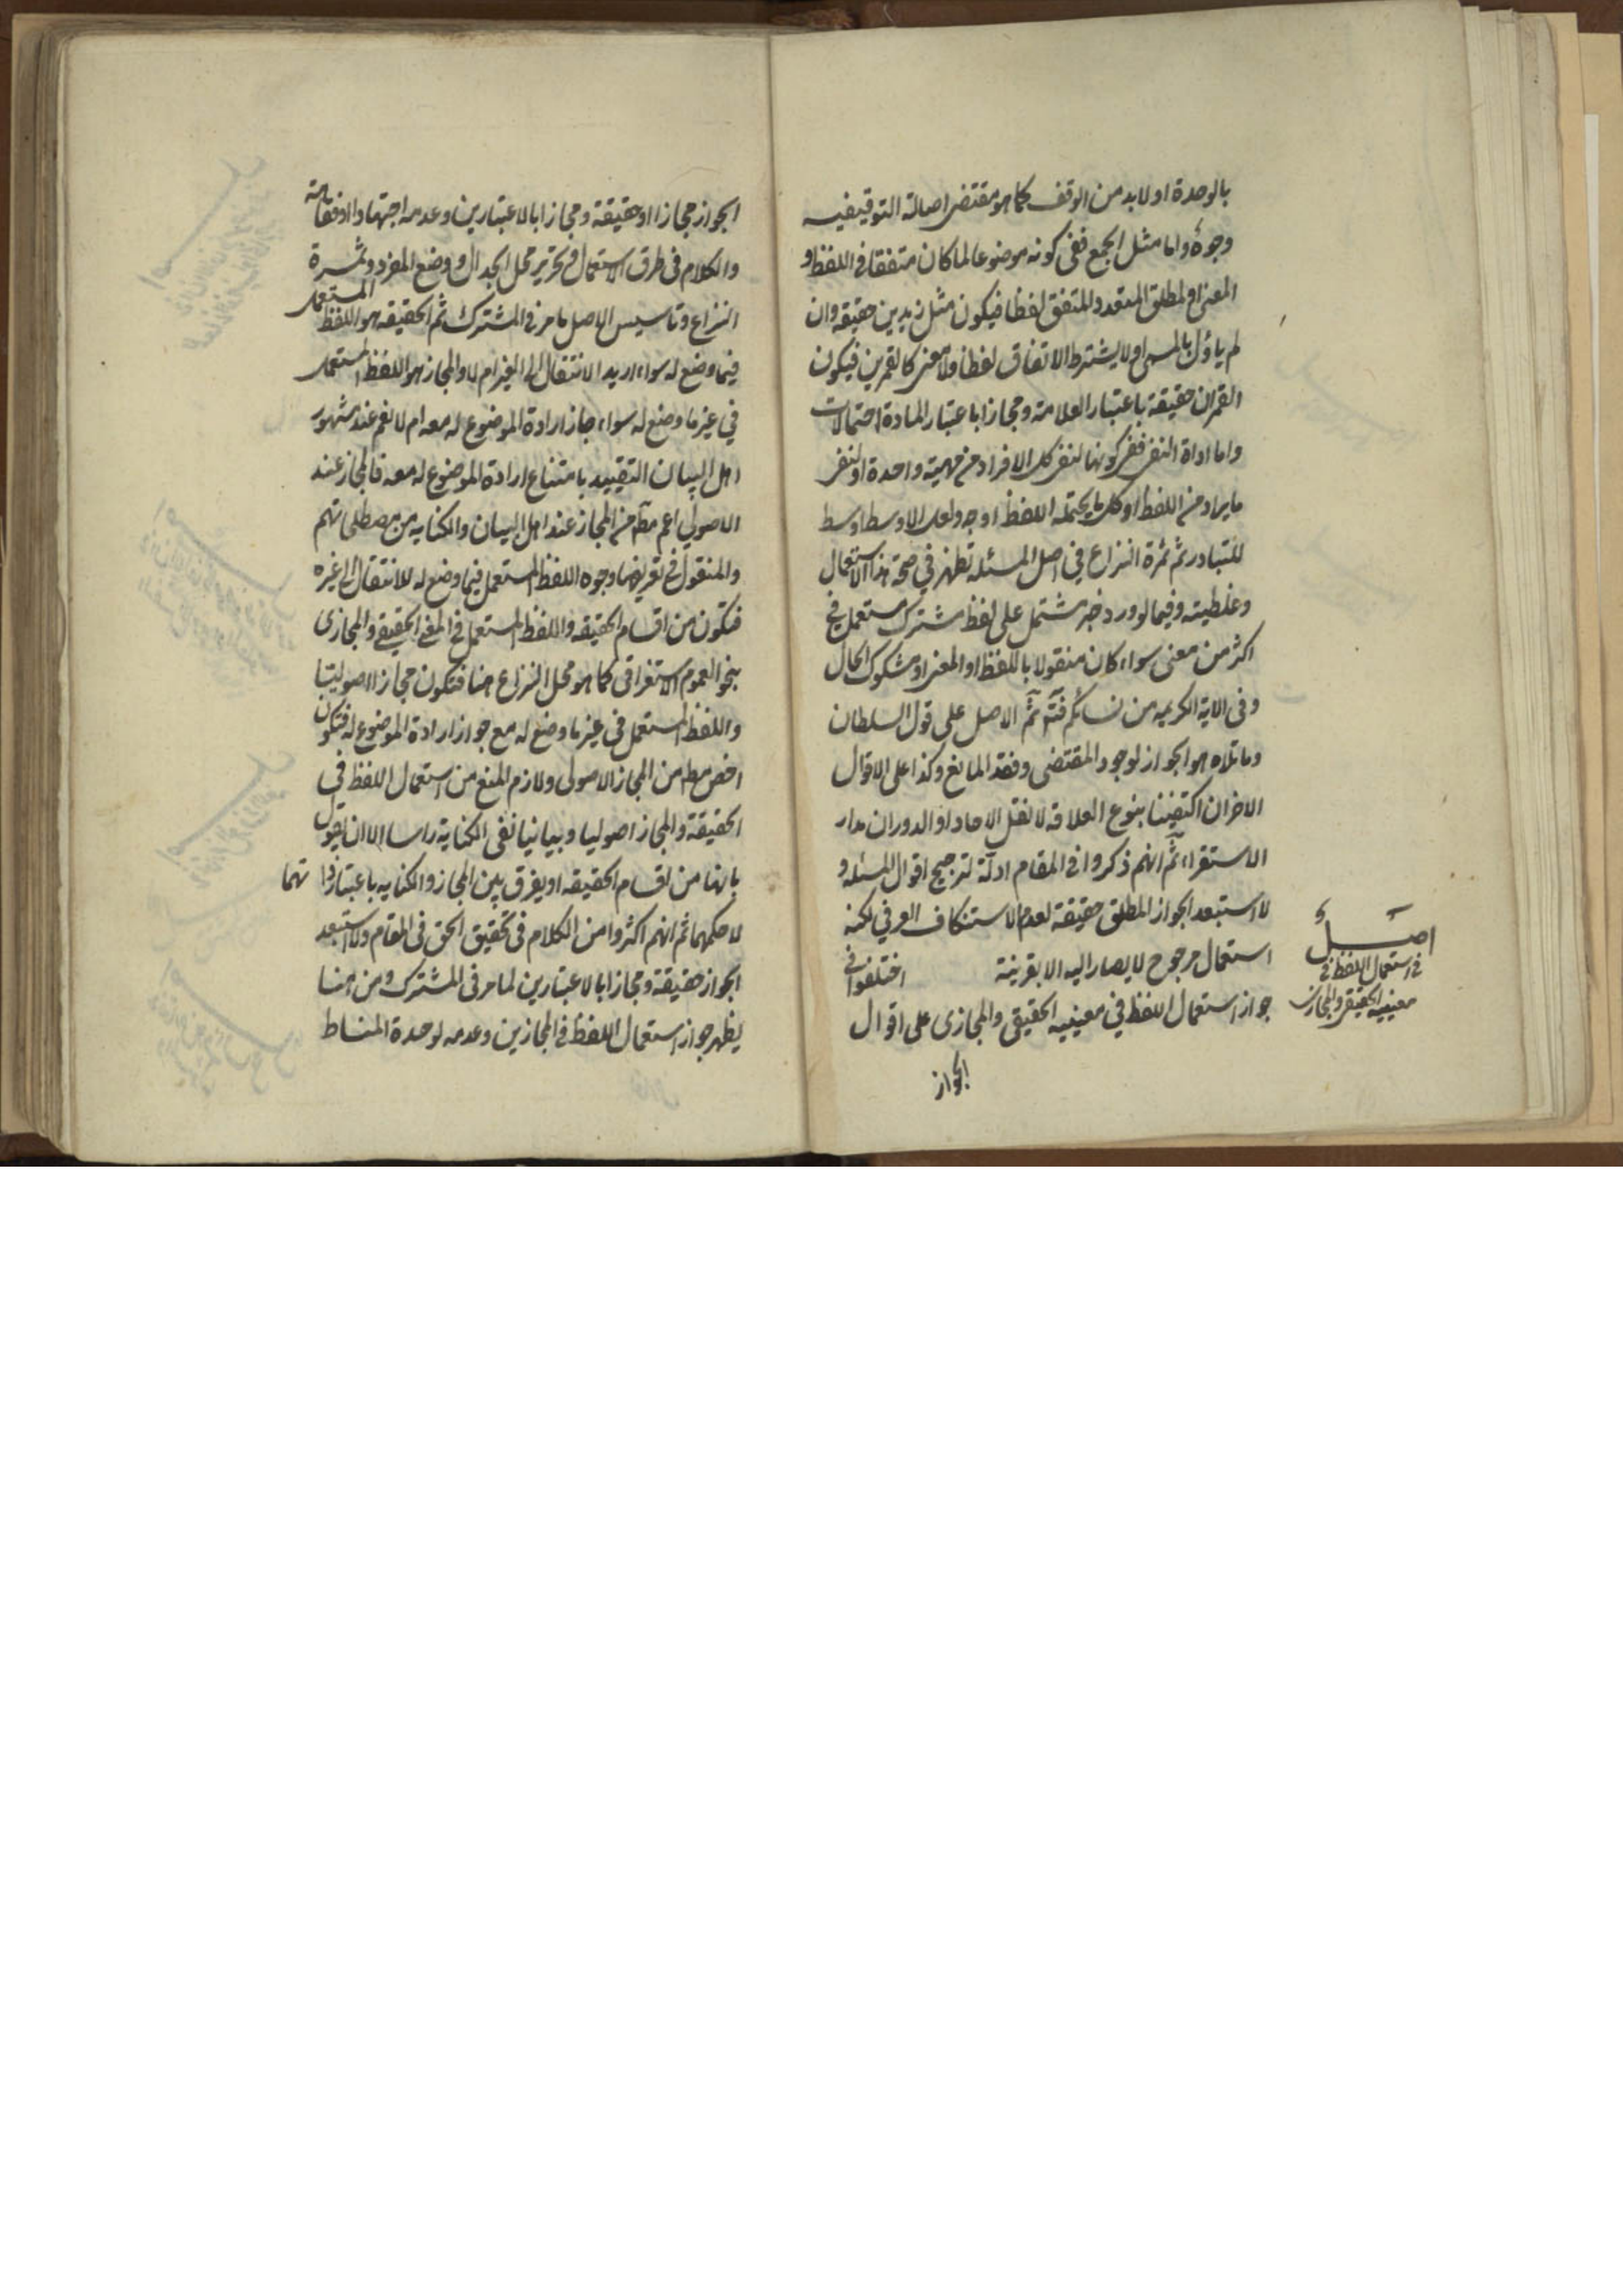 بالوحدة او لا بد من الوقف كما هو مقتضى اصالة التوقيفيه
وجوه واما مثل الجمع ففى كونه موضوعا لما كان متفقا فى اللفظ و
المعنى او لمطلق المتعدد المتفق لفظا فيكون مثل زيدين حقيقه وان
لم ياؤل بالمسمى او لا يشترط الاتفاق لفظا ولا معنى كالقمرين فيكون
القمران حقيقة باعتبار العلامة ومجازا باعتبار المادة احتمالات
واما اداة النفى ففى كونها لنفى كل الافراد من مهية واحدة او لنفى
ما يراد من اللفظ او كل ما يحتمله اللفظ اوجه ولعل الاوسط اوسط
للتبادر ثم ثمرة النزاع فى اصل المسئله تظهر في صحة هذا الاستعمال
وغلطيته وفيما لو ورد خبر مشتمل على لفظ مشترك مستعمل في
اكثر من معنى سواء كان منقولا باللفظ او المعنى او مشكوك الحال
وفى الاية الكريمه من نسائكم فتم ثم الاصل على قول السلطان
وما تلاه هو الجواز لوجود المقتضى وفقد المانع وكذا على الاقوال
الاخر ان اكتفينا بنوع العلاقه لا نقل الاحاد او الدوران مدار
الاستقراء ثم انهم ذكروا فى المقام ادلة لترجيح اقوال المسئله و
لا استبعد الجواز المطلق حقيقة لعدم الاستنكاف العرفي لكنه
استعمال مرجوح لا يصار اليه الا بقرينة اختلفوا فى
جواز استعمال اللفظ في معنييه الحقيقى والمجازى على اقوال
اصل
فى استعمال اللفظ فى
معنييه الحقيقى والمجازى
الجواز
الجواز مجازا او حقيقة ومجازا بالاعتبارين وعدمه
والكلام فى طرق الاستعمال وتحرير محل الجدال ووضع المفرد وثمرة
النزاع وتاسيس الاصل ما مر فى المشترك ثم الحقيقه هو اللفظ المستعمل
فيما وضع له سواء اريد الانتقال الى الغير ام لا والمجاز هو اللفظ المستعمل
في غير ما وضع له سواء جاز ارادة الموضوع له معه ام لا نعم عند مشهور
اهل البيان التقييد بامتناع ارادة الموضوع له معه فالمجاز عند
الاصولي اعم مطا من المجاز عند اهل البيان والكنايه من مصطلحاتهم
والمنقول في تعريفها وجوه اللفظ المستعمل فيما وضع له للانتقال الى غيره
فتكون من اقسام الحقيقه واللفظ المستعمل فى المعنى الحقيقى والمجازى
بنحو العموم الاستغراقى كما هو محل النزاع هنا فتكون مجازا اصوليتا
واللفظ المستعمل فى غير ما وضع له مع جواز ارادة الموضوع له فتكون
اخص مطا من المجاز الاصولى ولازم المنع من استعمال اللفظ في
الحقيقة والمجاز اصوليا وبيانيا نفى الكناية راسا الا ان يقول
بانها من اقسام الحقيقه او يفرق بين المجاز والكنايه باعتبار ذاتهما
لا حكمهما ثم انهم اكثروا من الكلام فى تحقيق الحق فى المقام ولا استبعد
الجواز حقيقة ومجازا بالاعتبارين لما مر فى المشترك ومن هنا
يظهر جواز استعمال اللفظ فى المجازين وعدمه لوحدة المناط